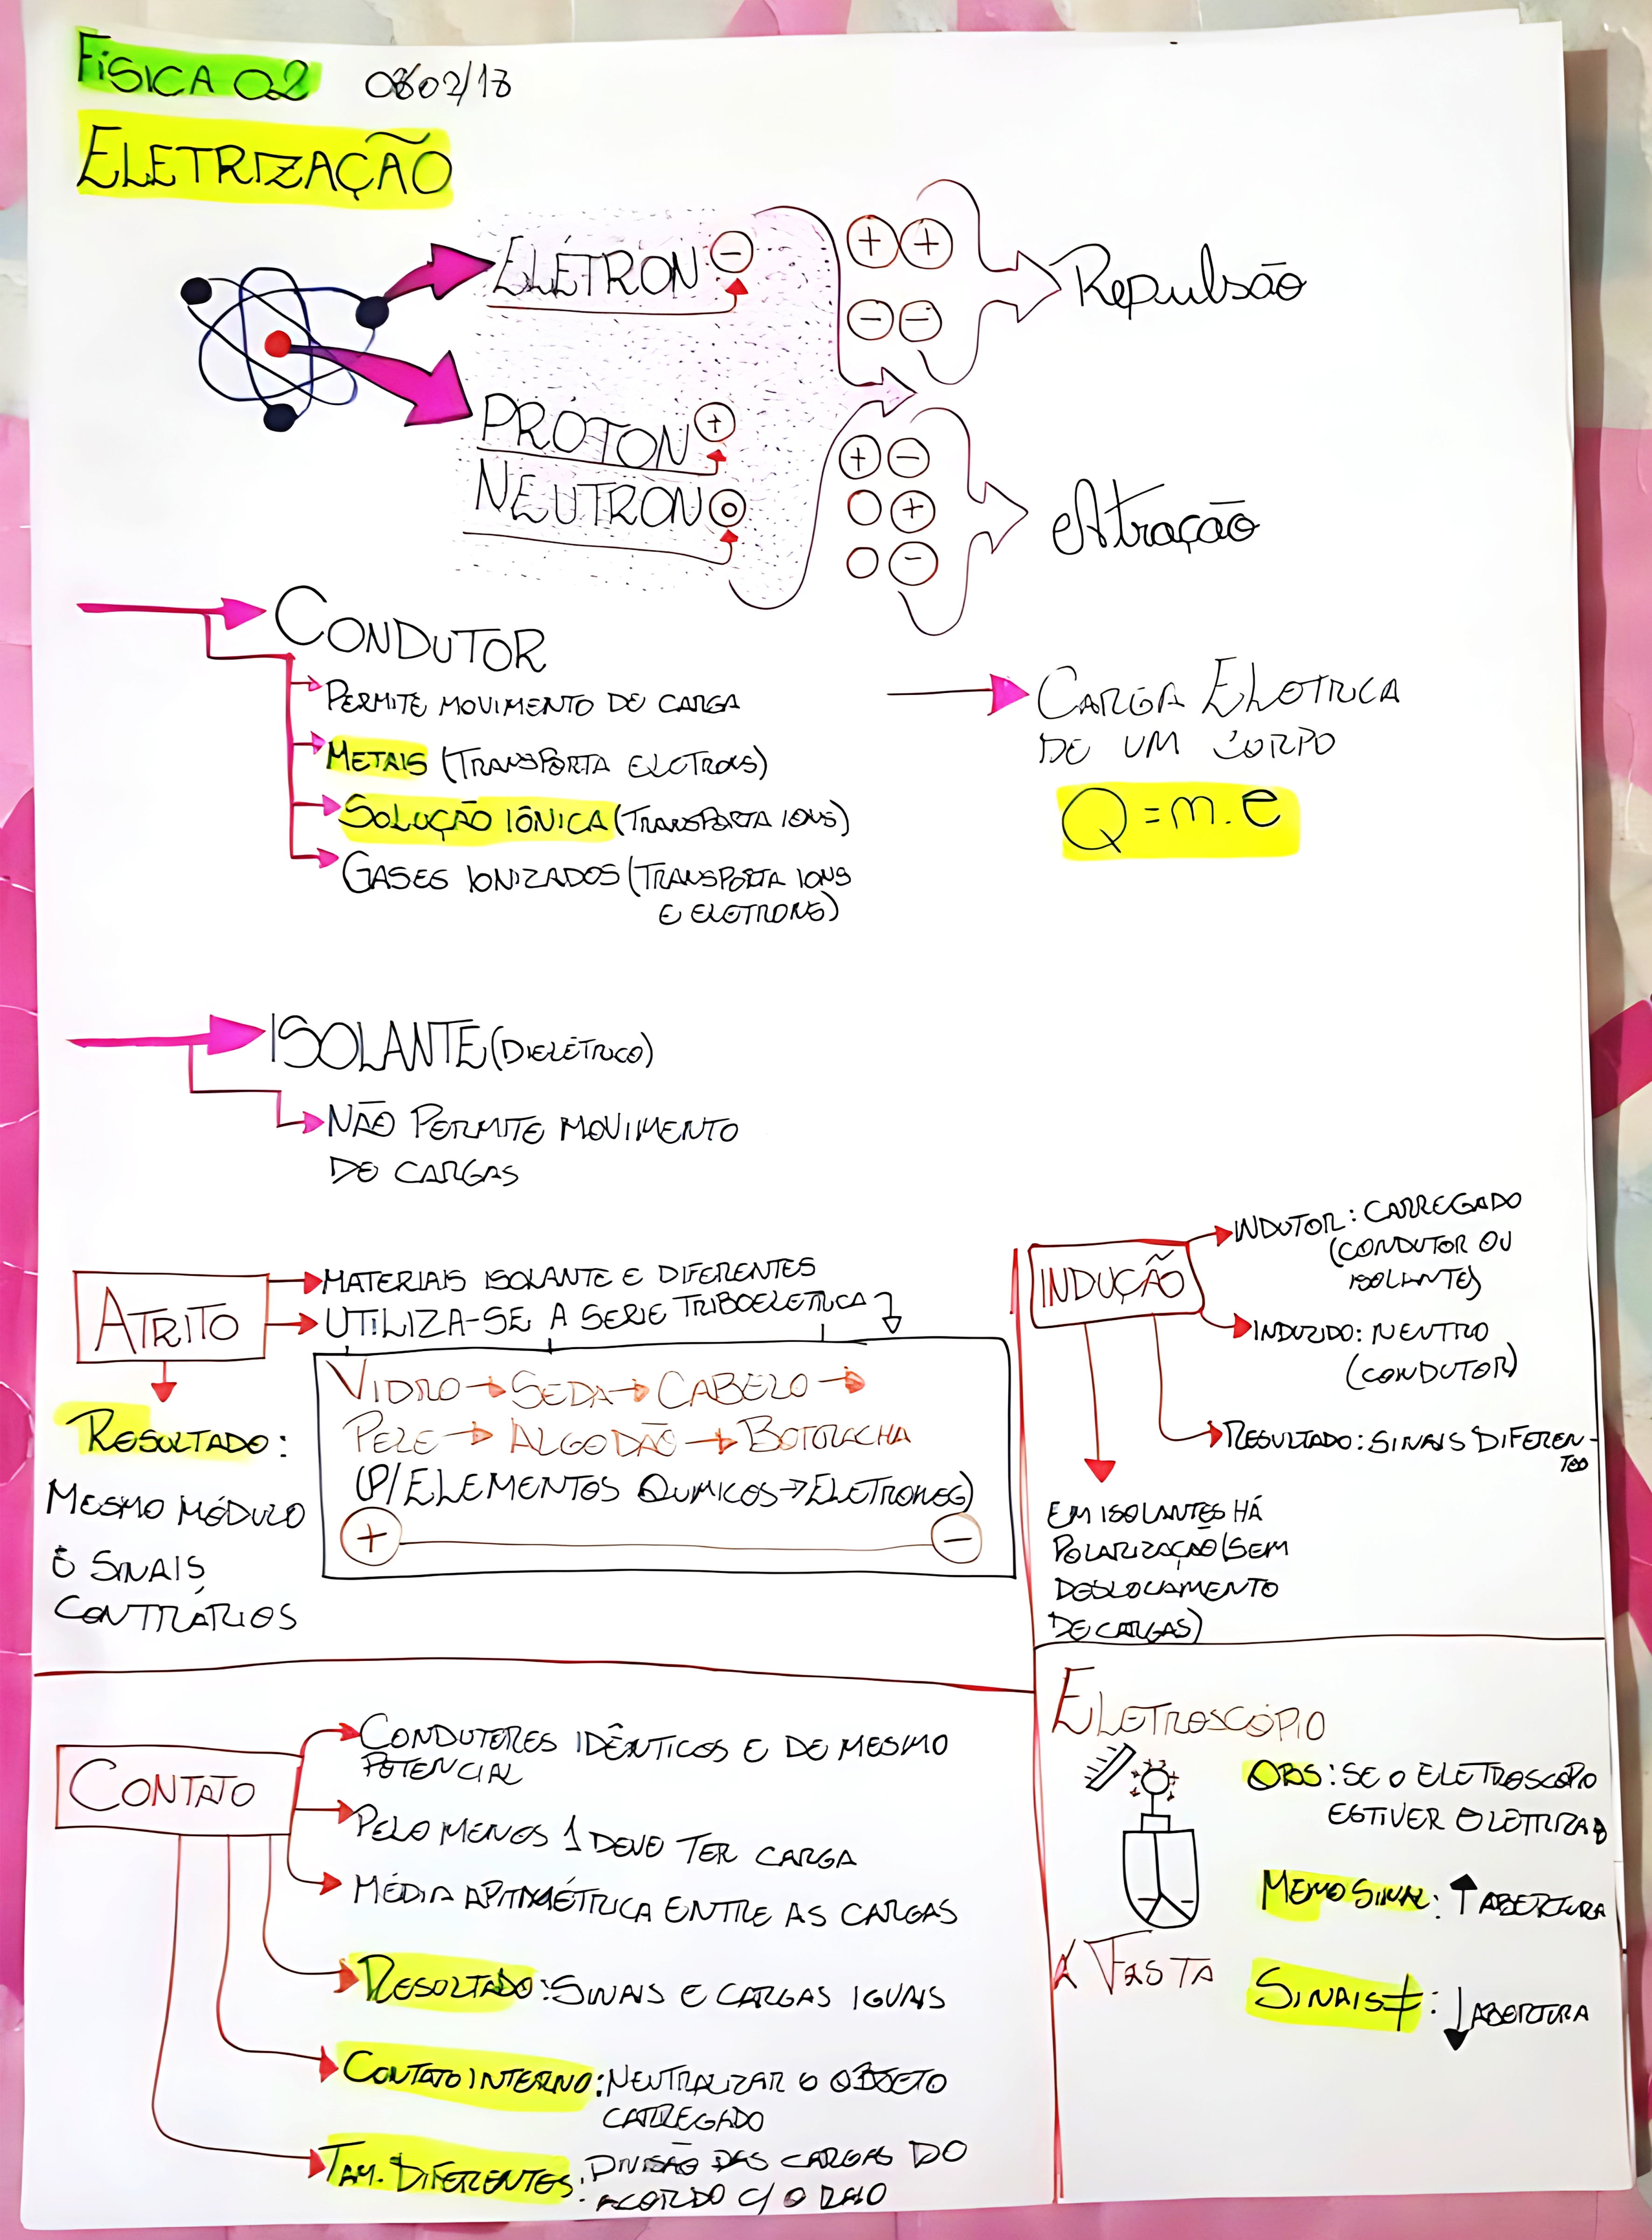 FÍSICA 02 08/02/18
ELETRIZAÇÃO
ELÉTRON −
PRÓTON +
NEUTRON
+ +
− −
Repulsão
+ −
+
−
Atração
CONDUTOR
PERMITE MOVIMENTO DE CARGA
METAIS (TRANSPORTA ELETRONS)
SOLUÇÃO IÔNICA (TRANSPORTA IONS)
GASES IONIZADOS (TRANSPORTA IONS
E ELETRONS)
CARGA ELETRICA
DE UM CORPO
Q = m . e
ISOLANTE (DIELÉTRICO)
NÃO PERMITE MOVIMENTO
DE CARGAS
ATRITO
MATERIAIS ISOLANTE E DIFERENTES
UTILIZA-SE A SERIE TRIBOELETRICA
VIDRO → SEDA → CABELO →
PELE → ALGODÃO → BORRACHA
(P/ ELEMENTOS QUIMICOS → ELETRONEG)
+ −
RESULTADO:
MESMO MÓDULO
E SINAIS
CONTRÁRIOS
INDUÇÃO
INDUTOR: CARREGADO
(CONDUTOR OU
ISOLANTE)
INDUZIDO: NEUTRO
(CONDUTOR)
RESULTADO: SINAIS DIFEREN-
TES
EM ISOLANTES HÁ
POLARIZAÇÃO (SEM
DESLOCAMENTO
DE CARGAS)
CONTATO
CONDUTORES IDÊNTICOS E DE MESMO
POTENCIAL
PELO MENOS 1 DEVE TER CARGA
MÉDIA ARITMÉTRICA ENTRE AS CARGAS
RESULTADO: SINAIS E CARGAS IGUAIS
CONTATO INTERNO: NEUTRALIZAR O OBJETO
CARREGADO
TAM. DIFERENTES: DIVISÃO DAS CARGAS DO
ACORDO C/ O RAIO
ELETROSCÓPIO
OBS: SE O ELETROSCÓPIO
ESTIVER ELETRIZADO
MEMO SINAL: ↑ ABERTURA
SINAIS ≠: ↓ ABERTURA